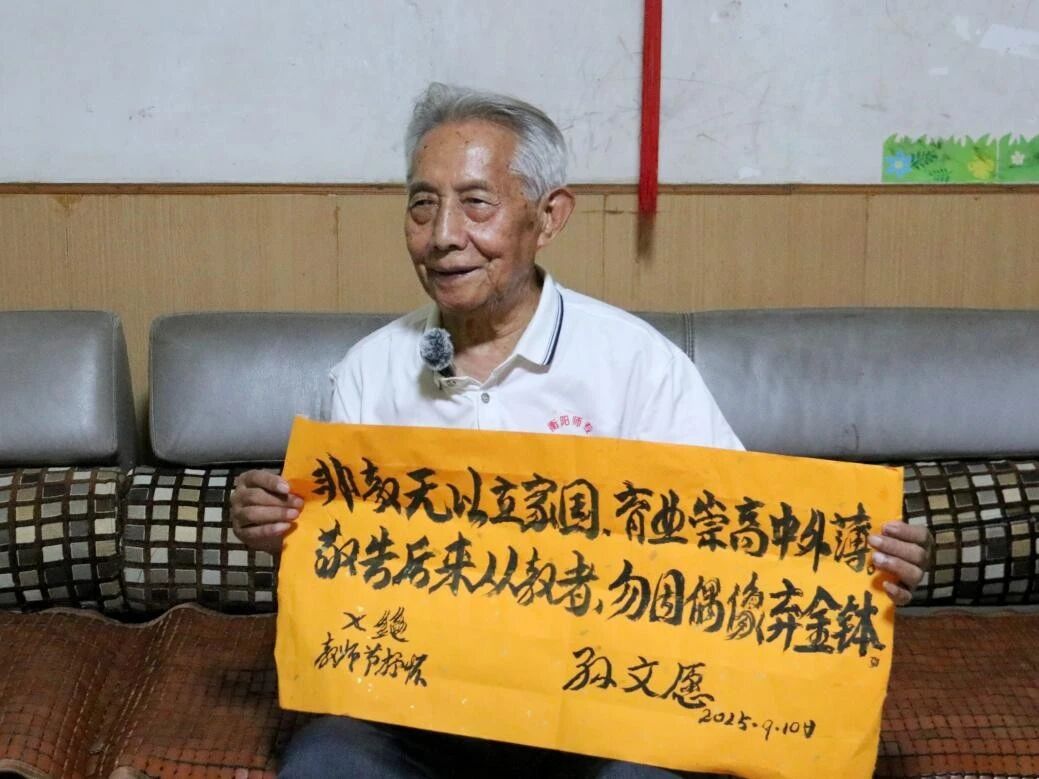 衡阳师专
非教无以立家国、育业崇高中外薄。
敬告后来从教者、勿因偶像弃金钵。
七绝
教师节抒怀
孙文愿
2025.9.10日